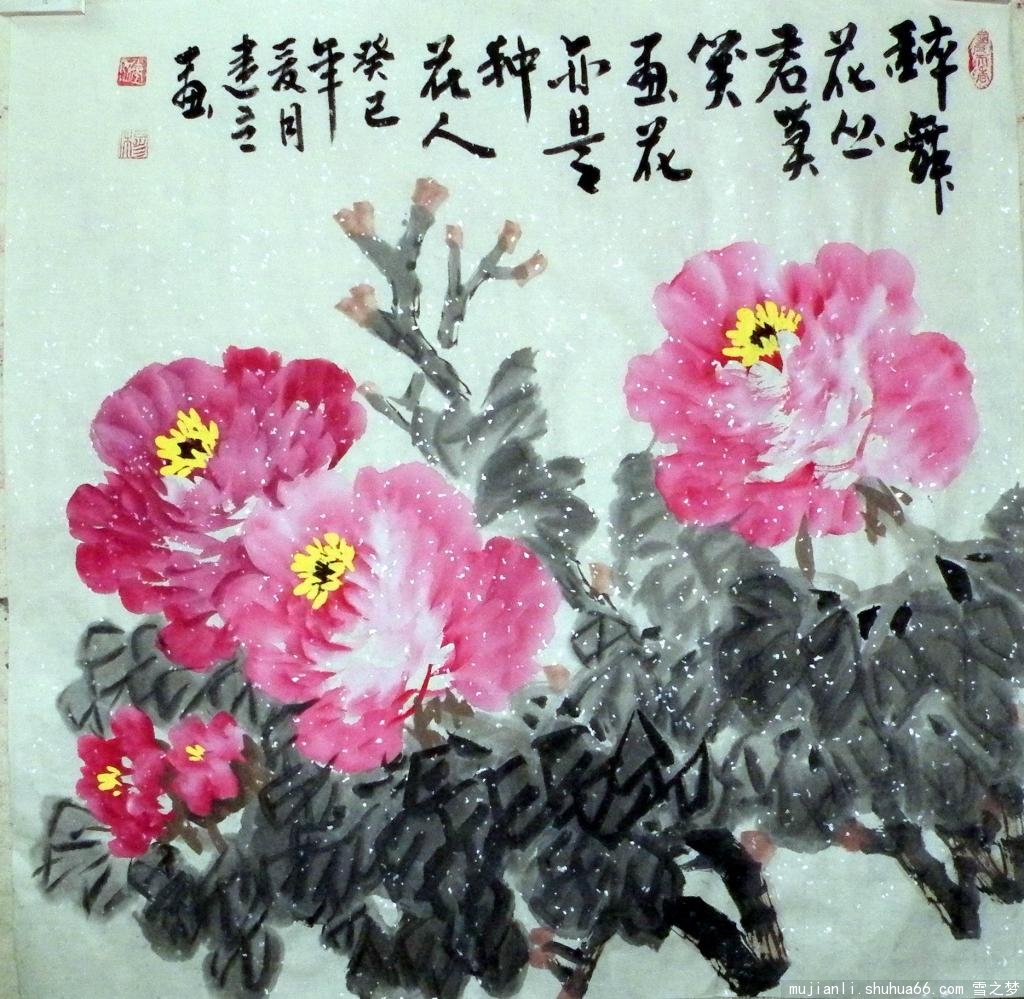 醉舞
花丛
君莫
笑
画花
亦是
种
花人
癸巳
年
夏月
建立
画
mujianli.shuhua66.com 雪之梦